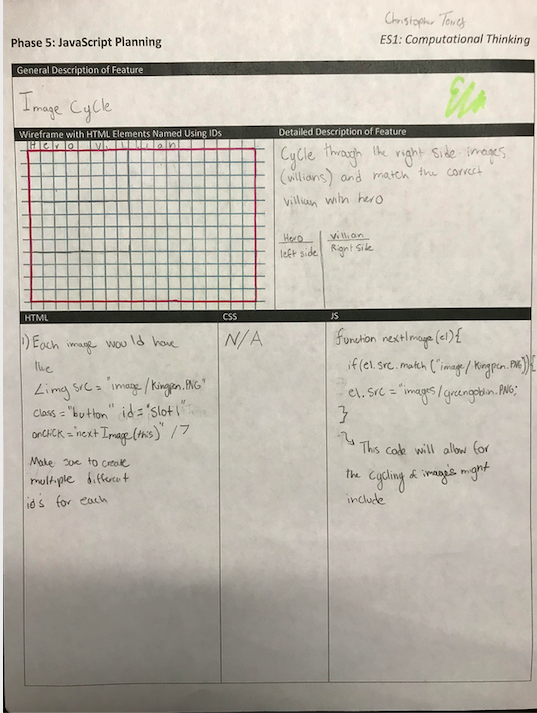 Christopher Torres
Phase 5: JavaScript Planning
ES1: Computational Thinking
General Description of Feature
Image Cycle
Wireframe with HTML Elements Named Using IDs
Hero villian
Detailed Description of Feature
Cycle through the right side images
(villians) and match the correct
villian with hero
Hero villian
left side Right side
HTML
1) Each image would have
the
<img src = "image/kingpen.PNG"
class = "button" id = "slot1"
onclick = "next Image(this)" />
Make sure to create
multiple different
id's for each
CSS
N/A
JS
function nextImage(el){
if(el.src.match("image/kingpen.PNG")){
el.src = "images/greengoblin.PNG;
}
This code will allow for
the cycling of images might
include